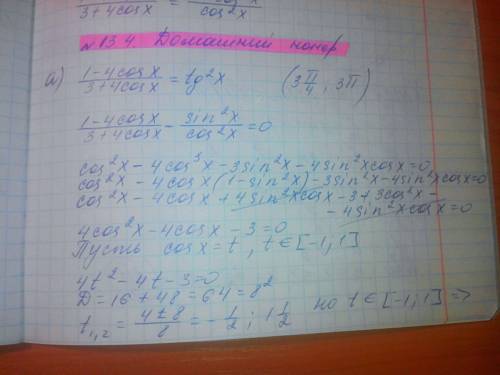 3+4cosx = cos²x
№13.4. Домашний номер
а) (1-4cosx)/(3+4cosx) = tg²x (3π/4; 3π)
(1-4cosx)/(3+4cosx) - sin²x/cos²x = 0
cos²x - 4cos³x - 3sin²x - 4sin²xcosx = 0
cos²x - 4cosx(1-sin²x) - 3sin²x - 4sin²xcosx = 0
cos²x - 4cosx + 4sin²xcosx - 3 + 3cos²x -
- 4sin²xcosx = 0
4cos²x - 4cosx - 3 = 0
Пусть cosx = t, t∈[-1;1]
4t² - 4t - 3 = 0
D = 16 + 48 = 64 = 8²
t₁,₂ = (4±8)/8 = -1/2; 1 1/2 но t∈[-1;1] =>